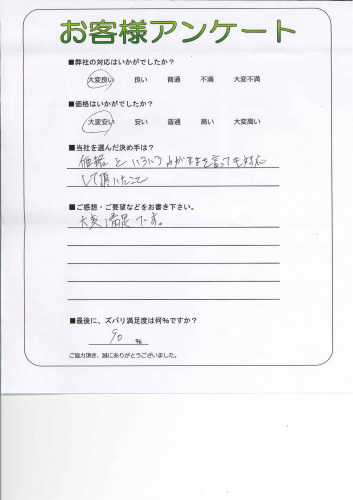 お客様アンケート
■弊社の対応はいかがでしたか?
大変良い 良い 普通 不満 大変不満
■価格はいかがでしたか?
大変安い 安い 普通 高い 大変高い
■当社を選んだ決め手は?
価格といろいろわがままを言っても対応
して頂いたこと
■ご感想・ご要望などをお書き下さい。
大変満足です。
■最後に、ズバリ満足度は何%ですか?
90 %
ご協力頂き、誠にありがとうございました。